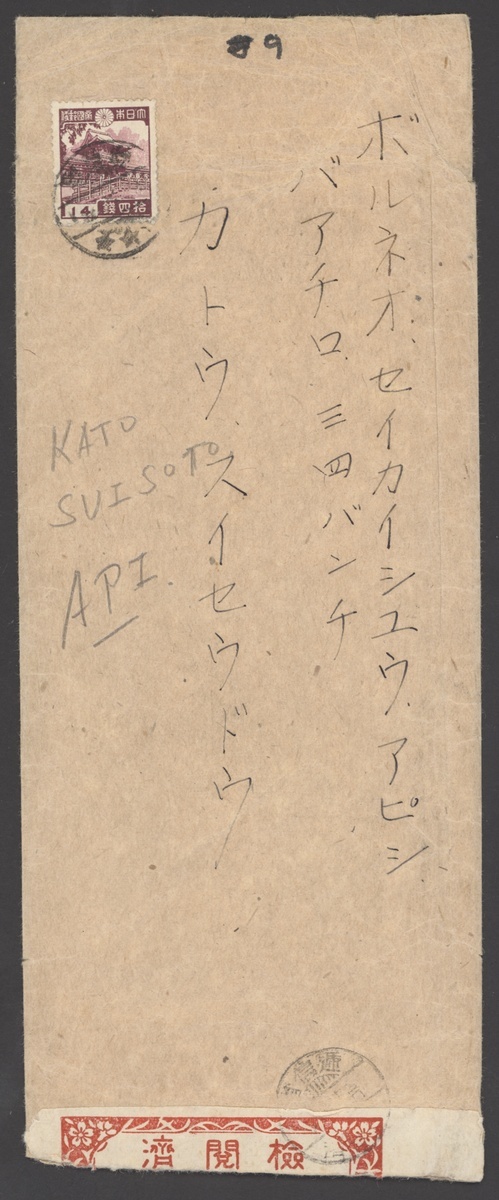 9
大日本帝國郵便
14 拾四錢
ボルネオ、セイカイシユウ、アピシ
バアチロ、三四バンチ
カトウ、スイセウドウ
KATO
SUISOTO
API
檢閲濟